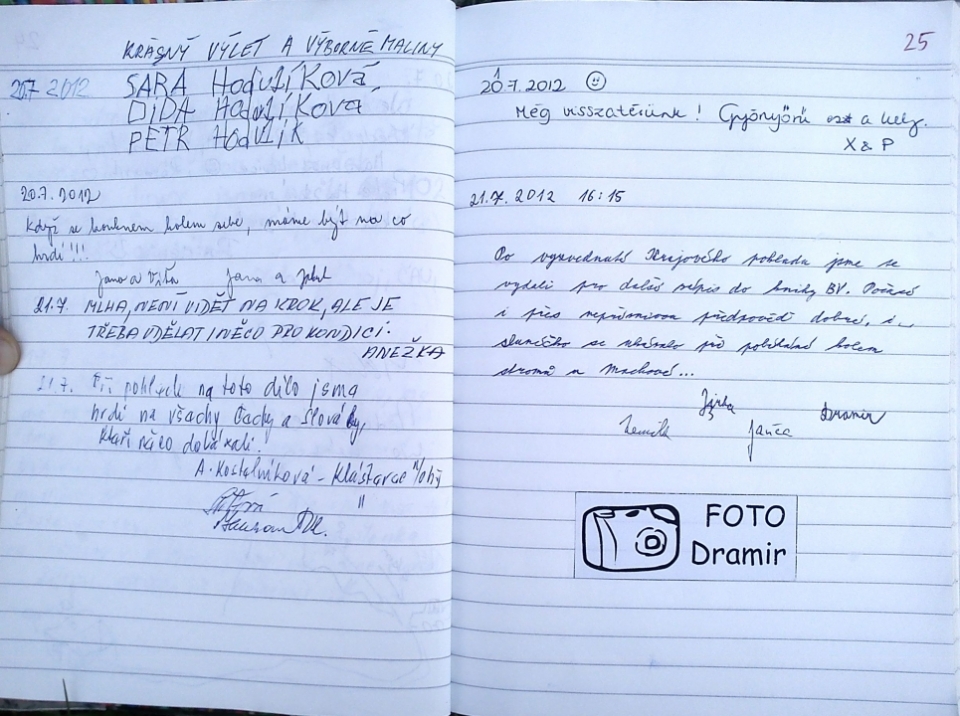 KRÁSNÝ VÝLET A VÝBORNÉ MALINY
20.7. 2012 SARA HodulÍKová
DiDA HodulÍKova
PETR HodulÍK
20.7. 2012
Když se kouknem kolem sebe, máme být na co
hrdí!!!
Jana a Jana a
21.7. MLHA, NENÍ VIDĚT NA KROK, ALE JE
TŘEBA UDĚLAT I NĚCO PRO KONDICI.
ANEŽKA
21.7. Při pohledu na toto dílo jsme
hrdí na všechy Čechy a Slováky,
kteří něco dokázali.
A. Kostelníková - Klášterec n/Ohří
"
25
20.7. 2012
Még visszatérünk! Gyönyörű a hely.
X & P
21.7. 2012 16:15
Po Krajového pohledu jsme se
vydali pro další zápis do knihy BV. Počasí
i přes předpovědi dobré, i
sluníčko se ukázalo při kolem
stromů u
Jirka Dramir
Janča
FOTO
Dramir